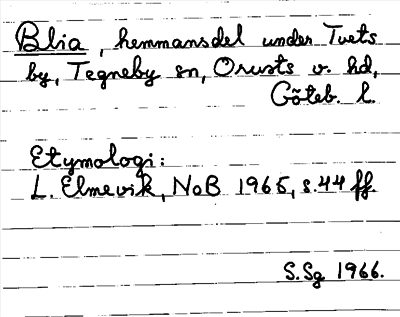 Blia, hemmansdel under Tvets
by, Tegneby sn, Orusts v. hd,
Göteb. l.
Etymologi:
L. Elmevik, NoB 1965, s.44 ff.
S.Sg 1966.